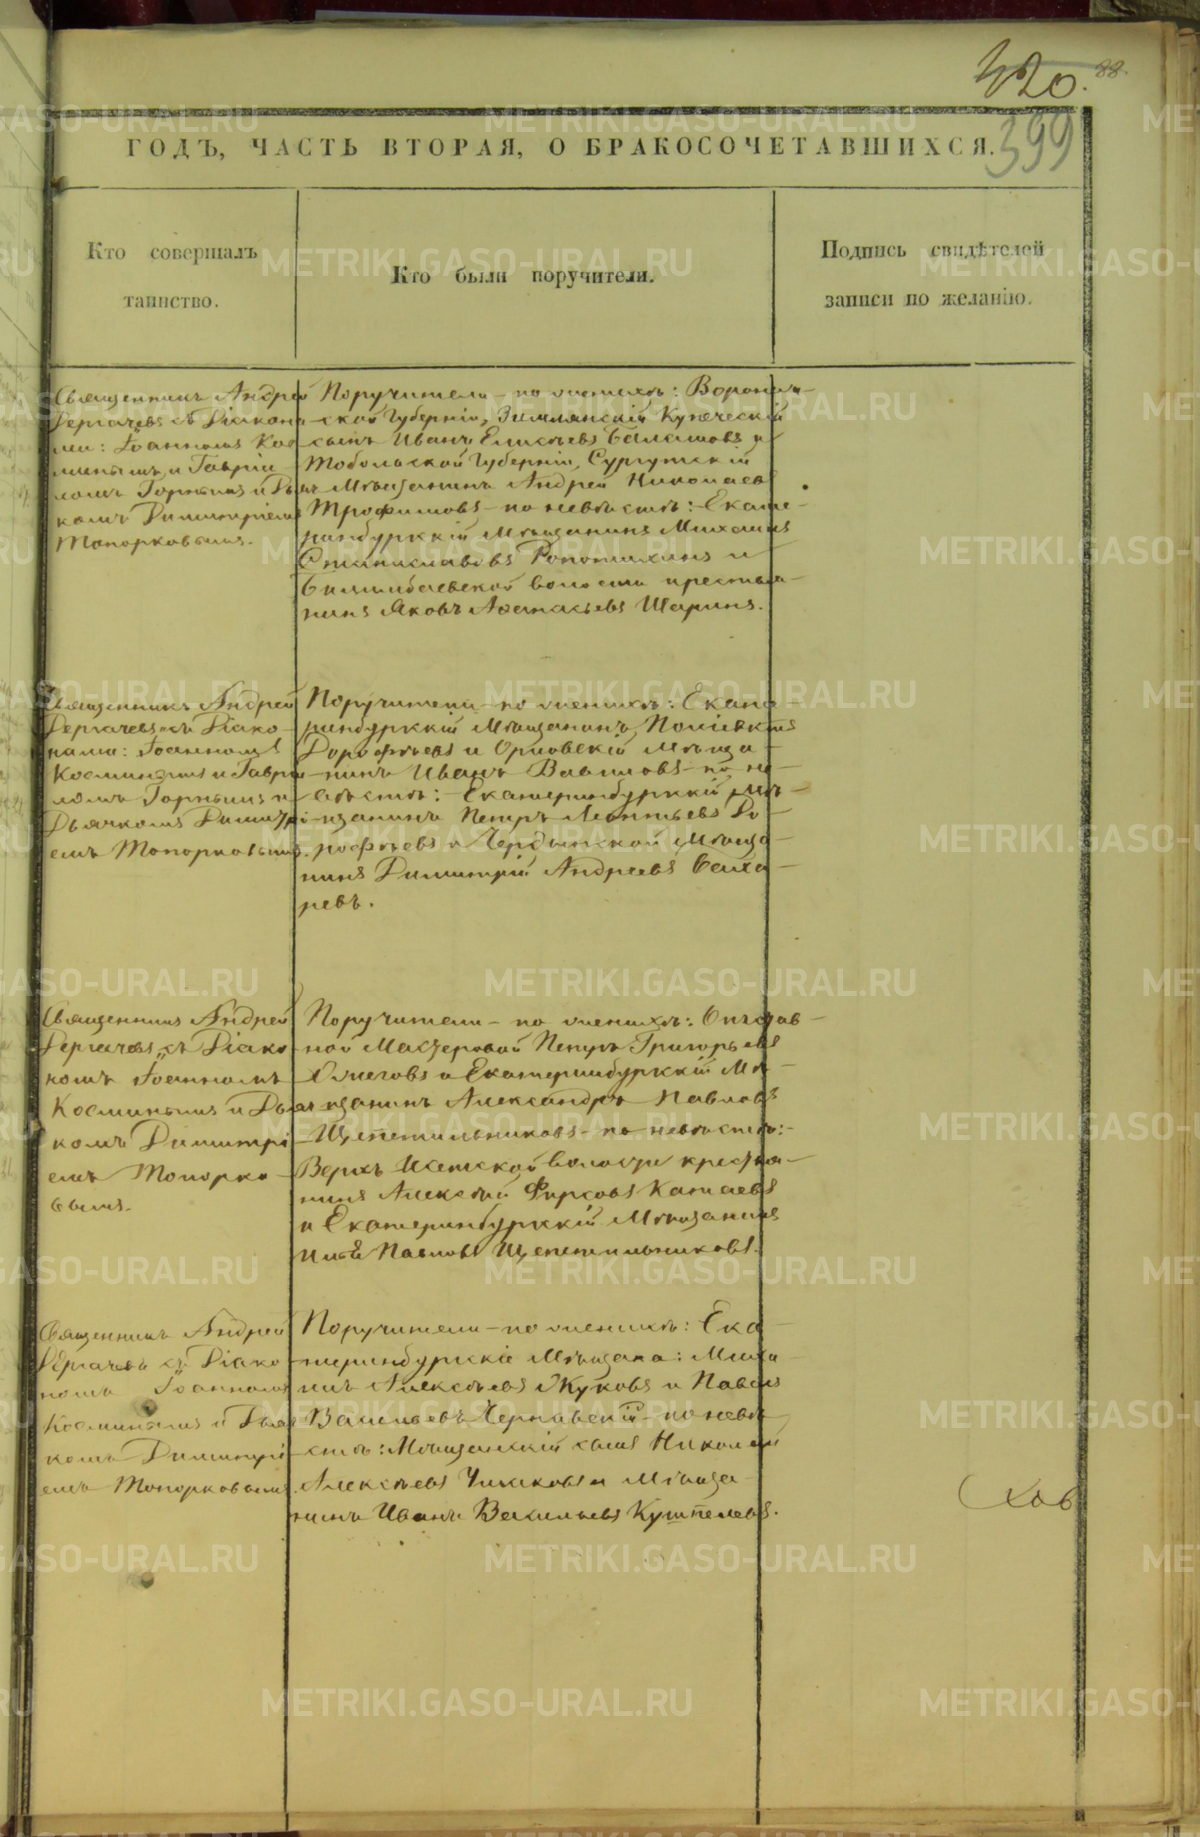 420. 88.
399
ГОДЪ, ЧАСТЬ ВТОРАЯ, О БРАКОСОЧЕТАВШИХСЯ.
Кто совершалъ
таинство.
Кто были поручители.
Подпись свидѣтелей
записи по желанію.
Священникъ Андрей
Дергачевъ съ Діакона
ми: Іоанномъ Кос
минымъ и Гавріи
ломъ Горнымъ и Дьяч
комъ Димитріемъ
Топорковымъ.
Поручители – по женихѣ: Воронеж
ской Губерніи, Землянскій Купеческій
сынъ Иванъ Елисѣевъ Балашовъ и
Тобольской Губерніи, Сургутскій
Мѣщанинъ Андрей Николаевъ
Трофимовъ – по невѣстѣ: Екате
ринбургскій Мѣщанинъ Михаилъ
Станиславовъ и
Билимбаевской волости крестья
нинъ Яковъ Аѳанасьевъ Шаринъ.
Священникъ Андрей
Дергачевъ съ Діако
нами: Іоанномъ
Косминымъ и Гаврі
ломъ Горнымъ и
Дьячкомъ Димитрі
емъ Топорковымъ.
Поручители – по женихѣ: Екате
ринбургскій Мѣщанинъ
Дорофѣевъ и Орловскій Мѣща
нинъ Иванъ Вавиловъ – по не
вѣстѣ: Екатеринбургскій Мѣ
щанинъ Петръ Леонтьевъ До
рофѣевъ и Чердынской Мѣща
нинъ Димитрій Андреевъ Саха
ревъ.
Священникъ Андрей
Дергачевъ съ Діако
номъ Іоанномъ
Косминымъ и Дьяч
комъ Димитрі
емъ Топорко
вымъ.
Поручители – по женихѣ: Отстав
ной Мастеровой Петръ Григорьевъ
и Екатеринбургскій Мѣ
щанинъ Александръ Павловъ
Щепетильниковъ – по невѣстѣ:
Верхъ Исетской Волости крестья
нинъ Алексѣй Фирсовъ Катаевъ
и Екатеринбургскій Мѣщанинъ
Илья Павловъ Щепетильниковъ.
Священникъ Андрей
Дергачевъ съ Діако
номъ Іоанномъ
Косминымъ и Дьяч
комъ Димитрі
емъ Топорковымъ.
Поручители – по женихѣ: Ека
теринбургскіе Мѣщане: Миха
илъ Алексѣевъ Жуковъ и Павелъ
Васильевъ Чернавскій – по невѣ
стѣ: Мѣщанскій сынъ Николай
Алексѣевъ и Мѣща
нинъ Иванъ Васильевъ Кушпелевъ.
METRIKI.GASO-URAL.RU